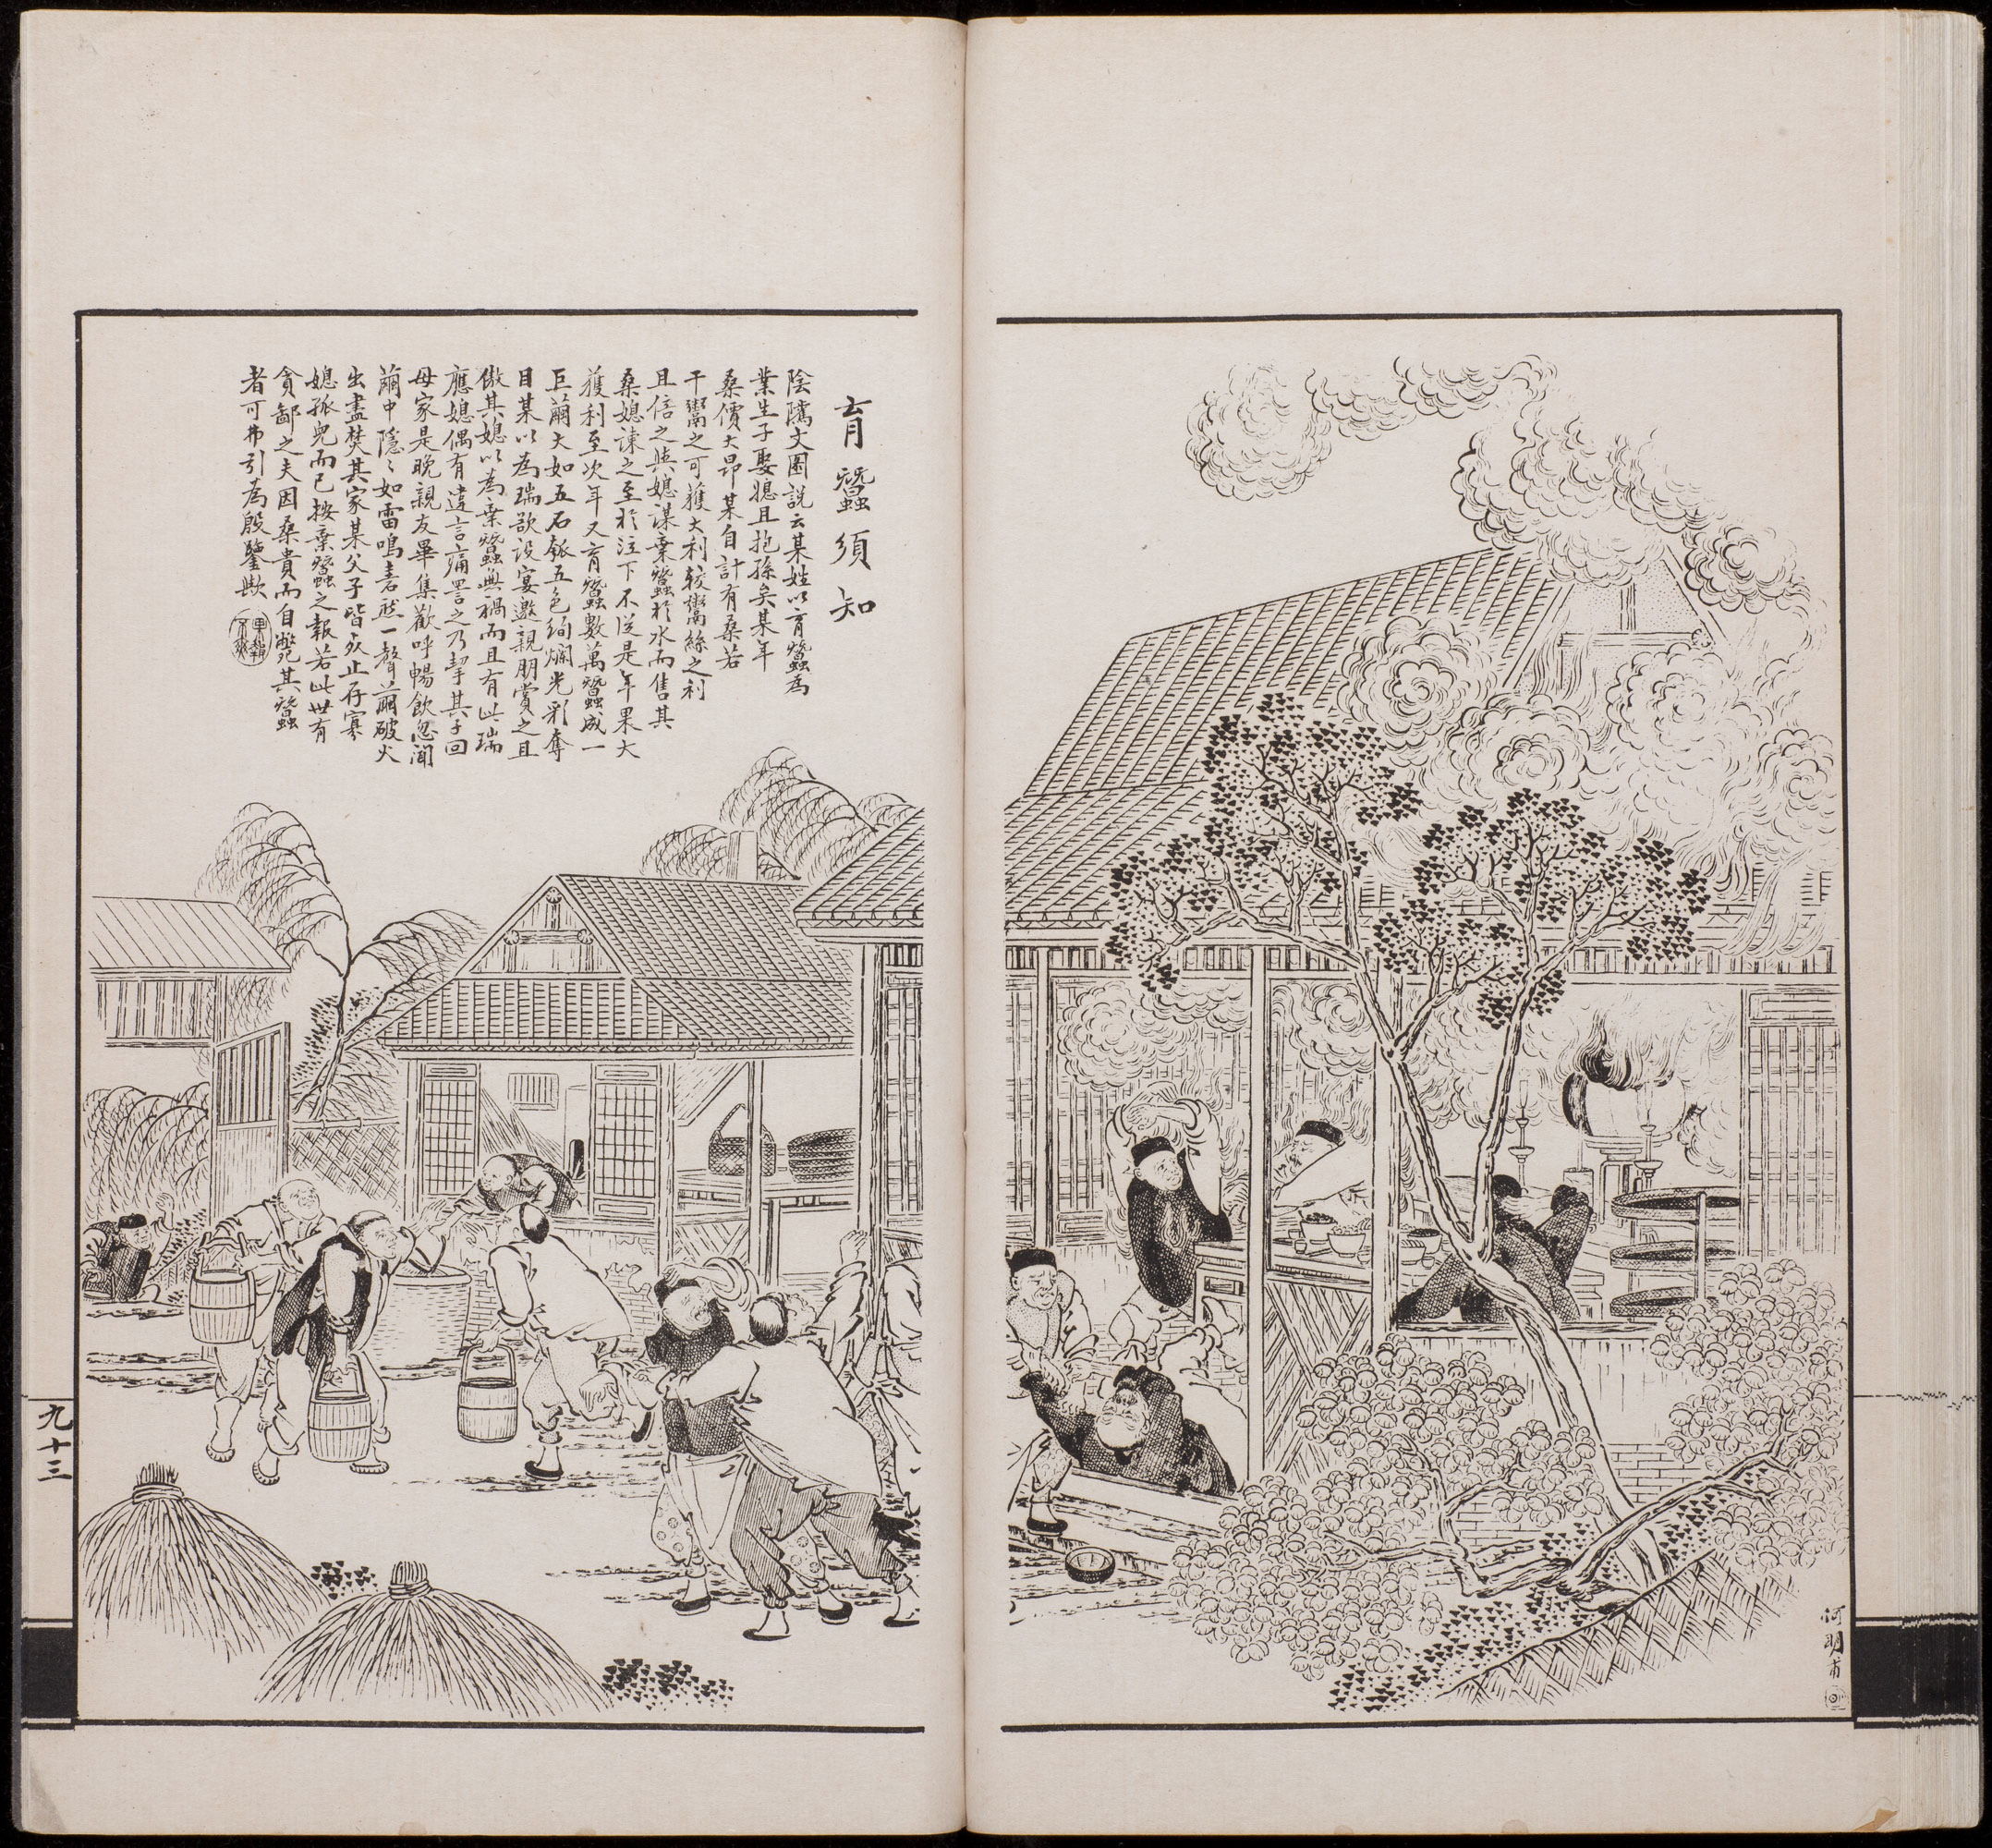 育蠶須知
陰隲文圖説云某姓以育蠶為
業生子娶媳且抱孫矣某年
桑價大昂某自計有桑若
干鬻之可獲大利較鬻絲之利
且倍之與媳謀棄蠶於水而售其
桑媳諫之至於泣下不從是年果大
獲利至次年又育蠶數萬蠶成一
巨繭大如五石瓠五色絢爛光彩奪
目某以為瑞欲設宴邀親朋賞之且
傲其媳以為棄蠶無禍而且有此瑞
應媳偶有違言痛詈之乃挈其子回
母家是晚親友畢集歡呼暢飲忽聞
繭中隱々如雷鳴砉然一聲繭破火
出盡焚其家某父子皆死止存寡
媳孤兒而已按棄蠶之報若此世有
貪鄙之夫因桑貴而自斃其蠶
者可弗引為殷鑒歟
九十三
何明甫